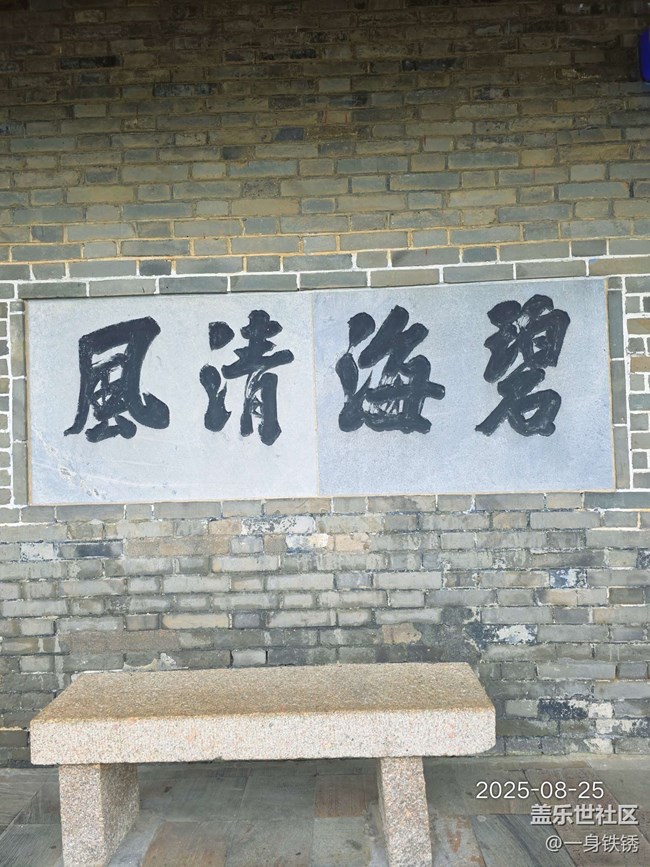 碧海清風
2025-08-25
盖乐世社区
@一身铁锈